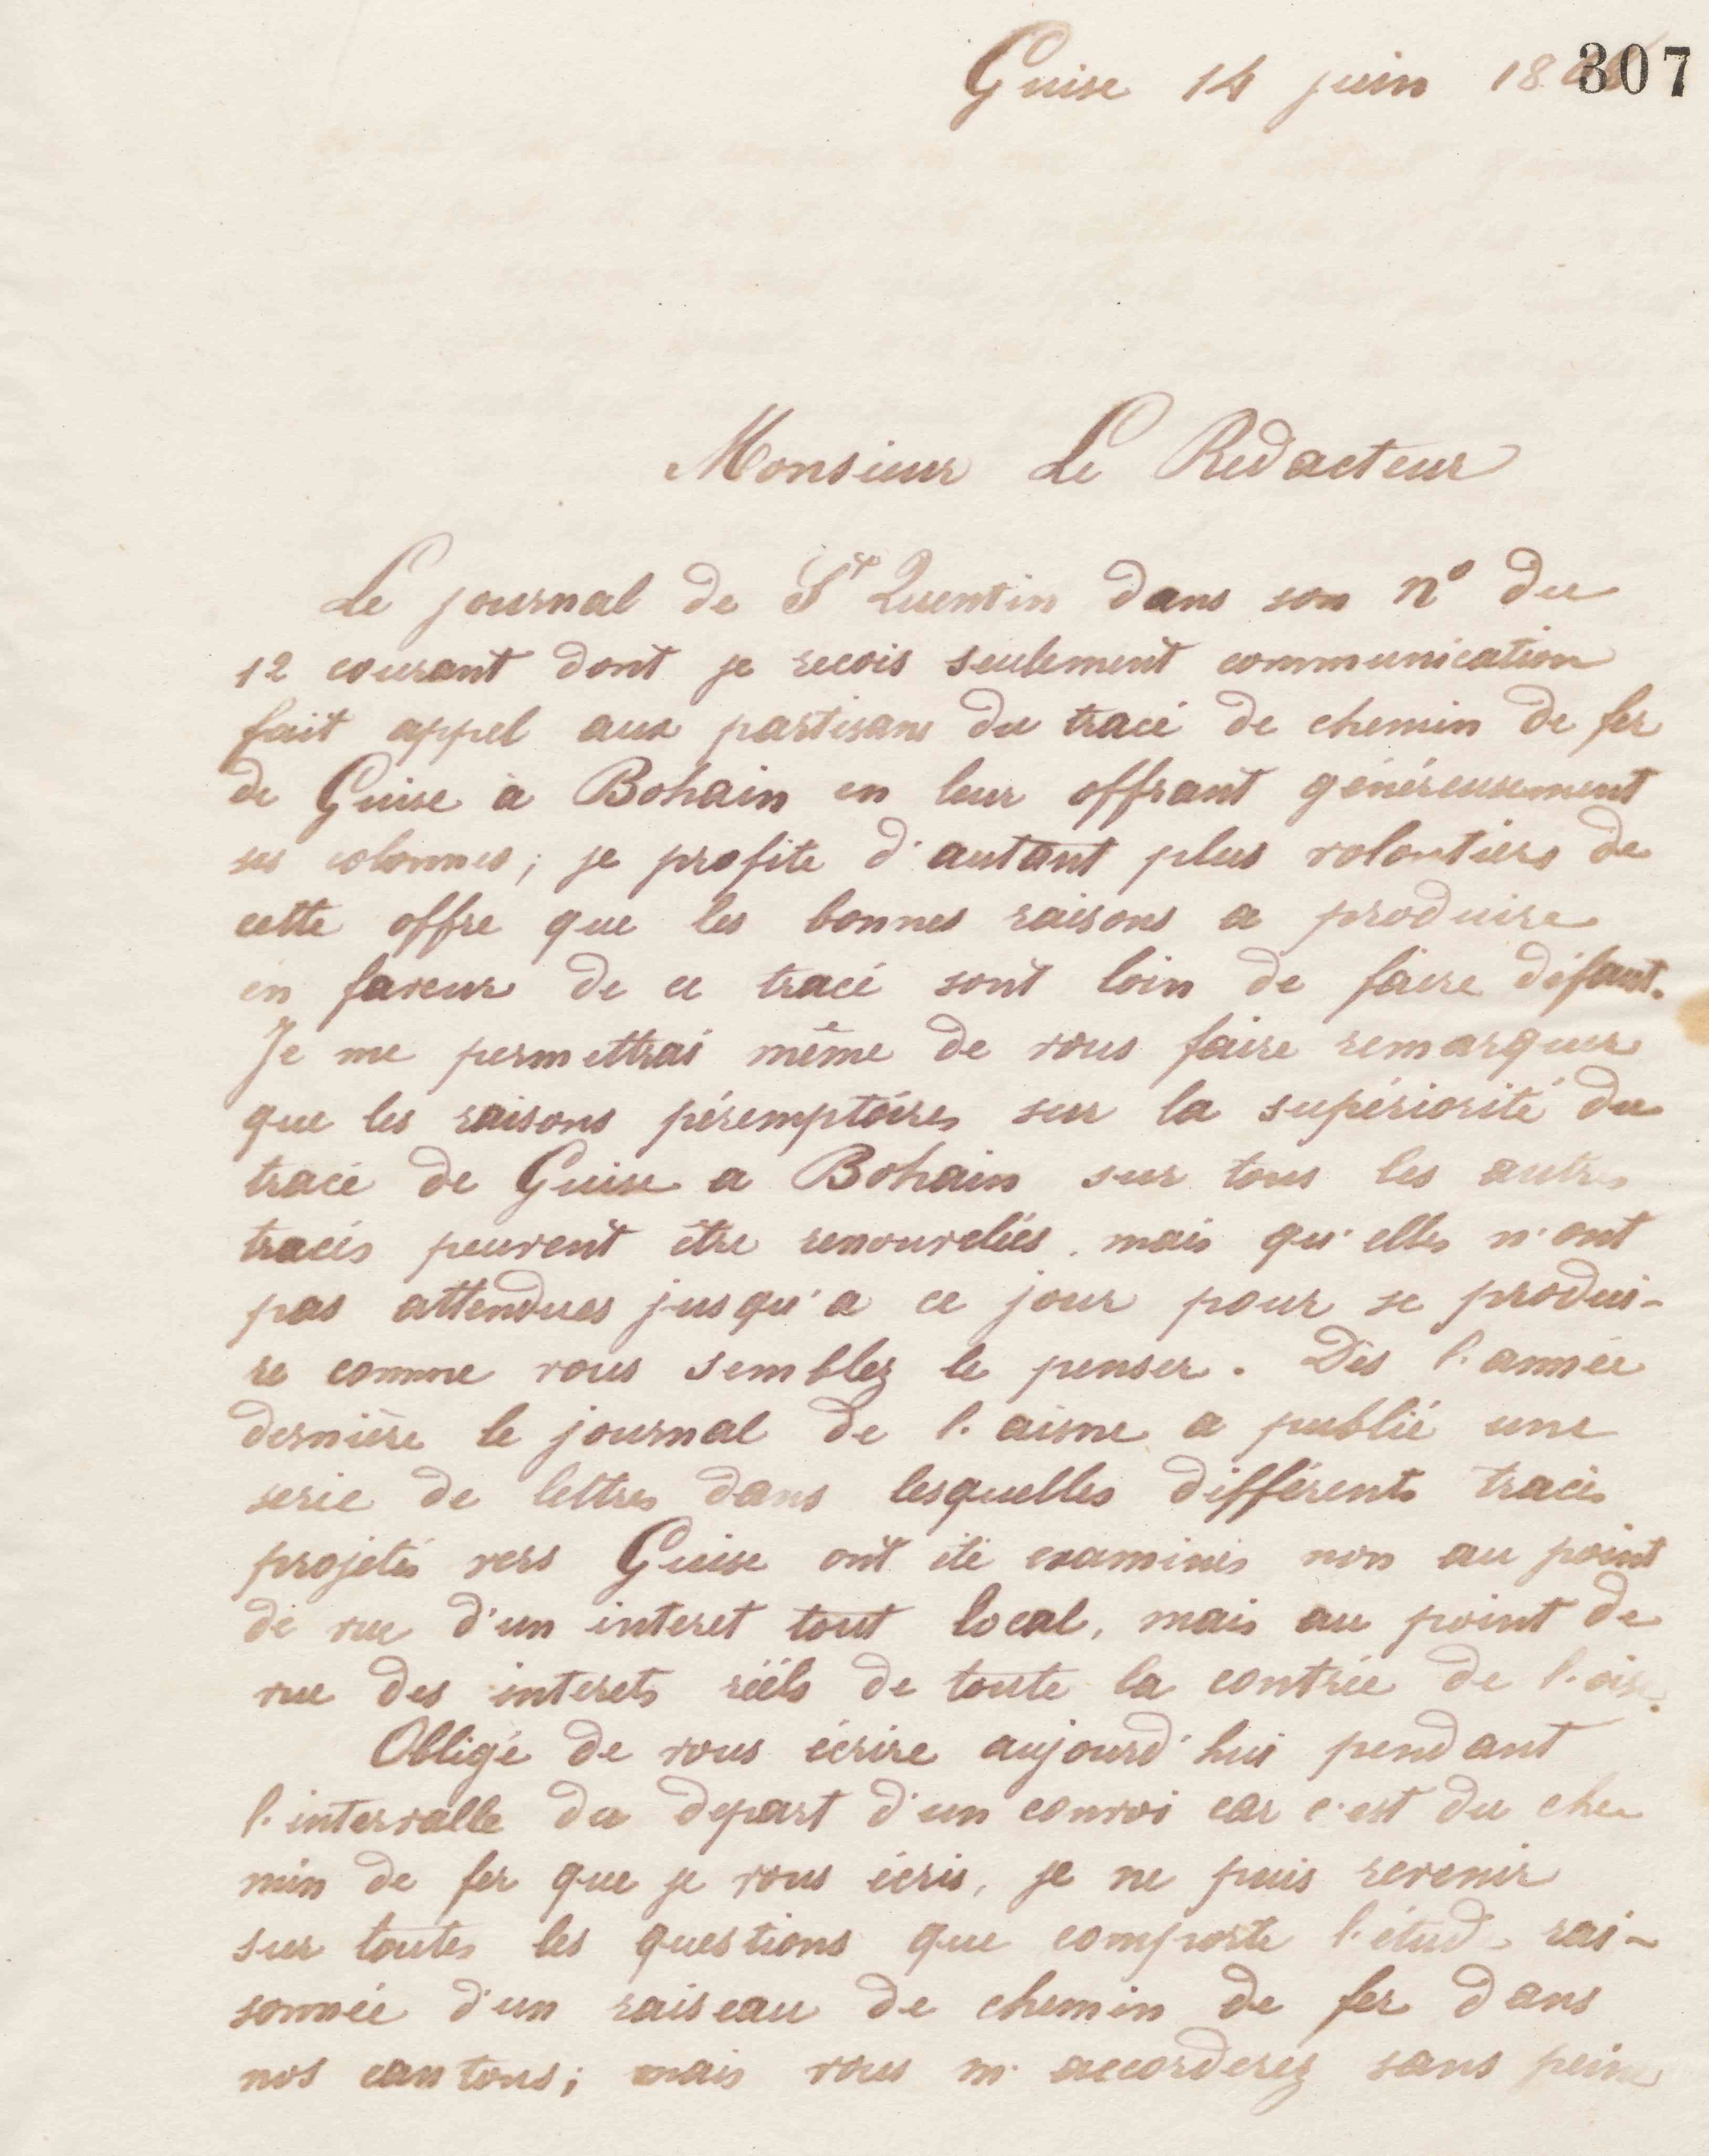 Guise 14 juin 18
307
Monsieur Le Redacteur
Le journal de St Quentin dans son n° du
12 courant dont je recois seulement communication
fait appel aux partisans du tracé de chemin de fer
de Guise à Bohain en leur offrant généreusement
ses colonnes; je profite d'autant plus volontiers de
cette offre que les bonnes raisons a produire
en faveur de ce tracé sont loin de faire défaut.
Je me permettrai même de vous faire remarquer
que les raisons péremptoires sur la supériorité du
tracé de Guise a Bohain sur tous les autres
tracés peuvent être renouvelées, mais qu'elles n'ont
pas attendues jusqu'a ce jour pour se produi-
re comme vous semblez le penser. Dès l'année
dernière le journal de l'aisne a publié une
serie de lettres dans lesquelles différents tracés
projetés vers Guise ont été examinés non au point
de vue d'un interet tout local, mais au point de
vue des interets réels de toute la contrée de l'oise.
Obligé de vous écrire aujourd'hui pendant
l'intervalle du depart d'un convoi car c'est du che
min de fer que je vous écris, je ne puis revenir
sur toutes les questions que comporte l'étude rai-
sonnée d'un raiseau de chemin de fer dans
nos cantons; mais vous m'accorderez sans peine